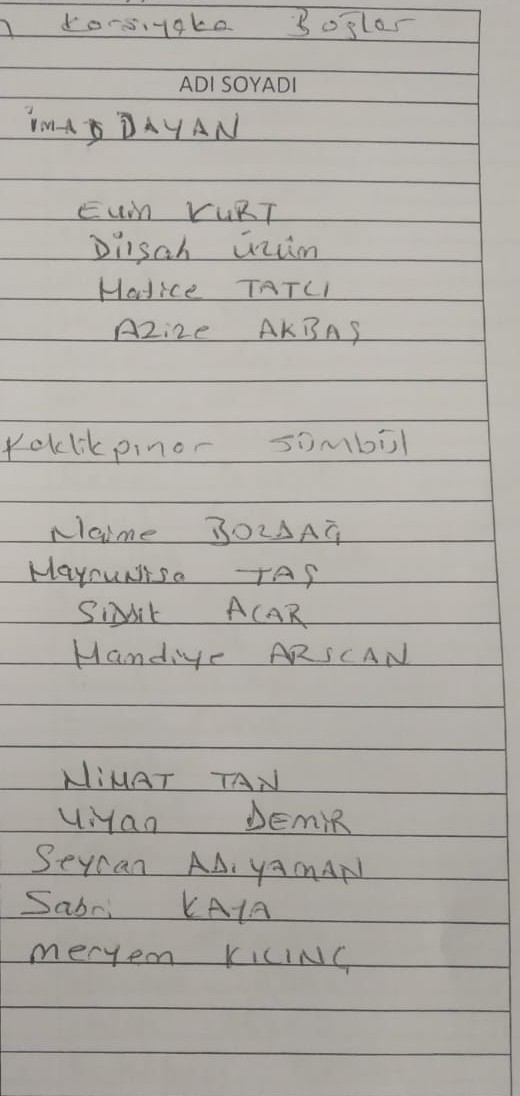 Karsıyaka Bağlar
ADI SOYADI
İMAD DAYAN
Evin KURT
Dilşah üzüm
Hatice TATLI
Azize AKBAŞ
Keklikpınar Sümbül
Naime BOZDAĞ
Hayrunisa TAŞ
Sıddık ACAR
Handiye ARSLAN
NİHAT TAN
Viyan DEMİR
Seyran ADIYAMAN
Sabri KAYA
Meryem KILINÇ